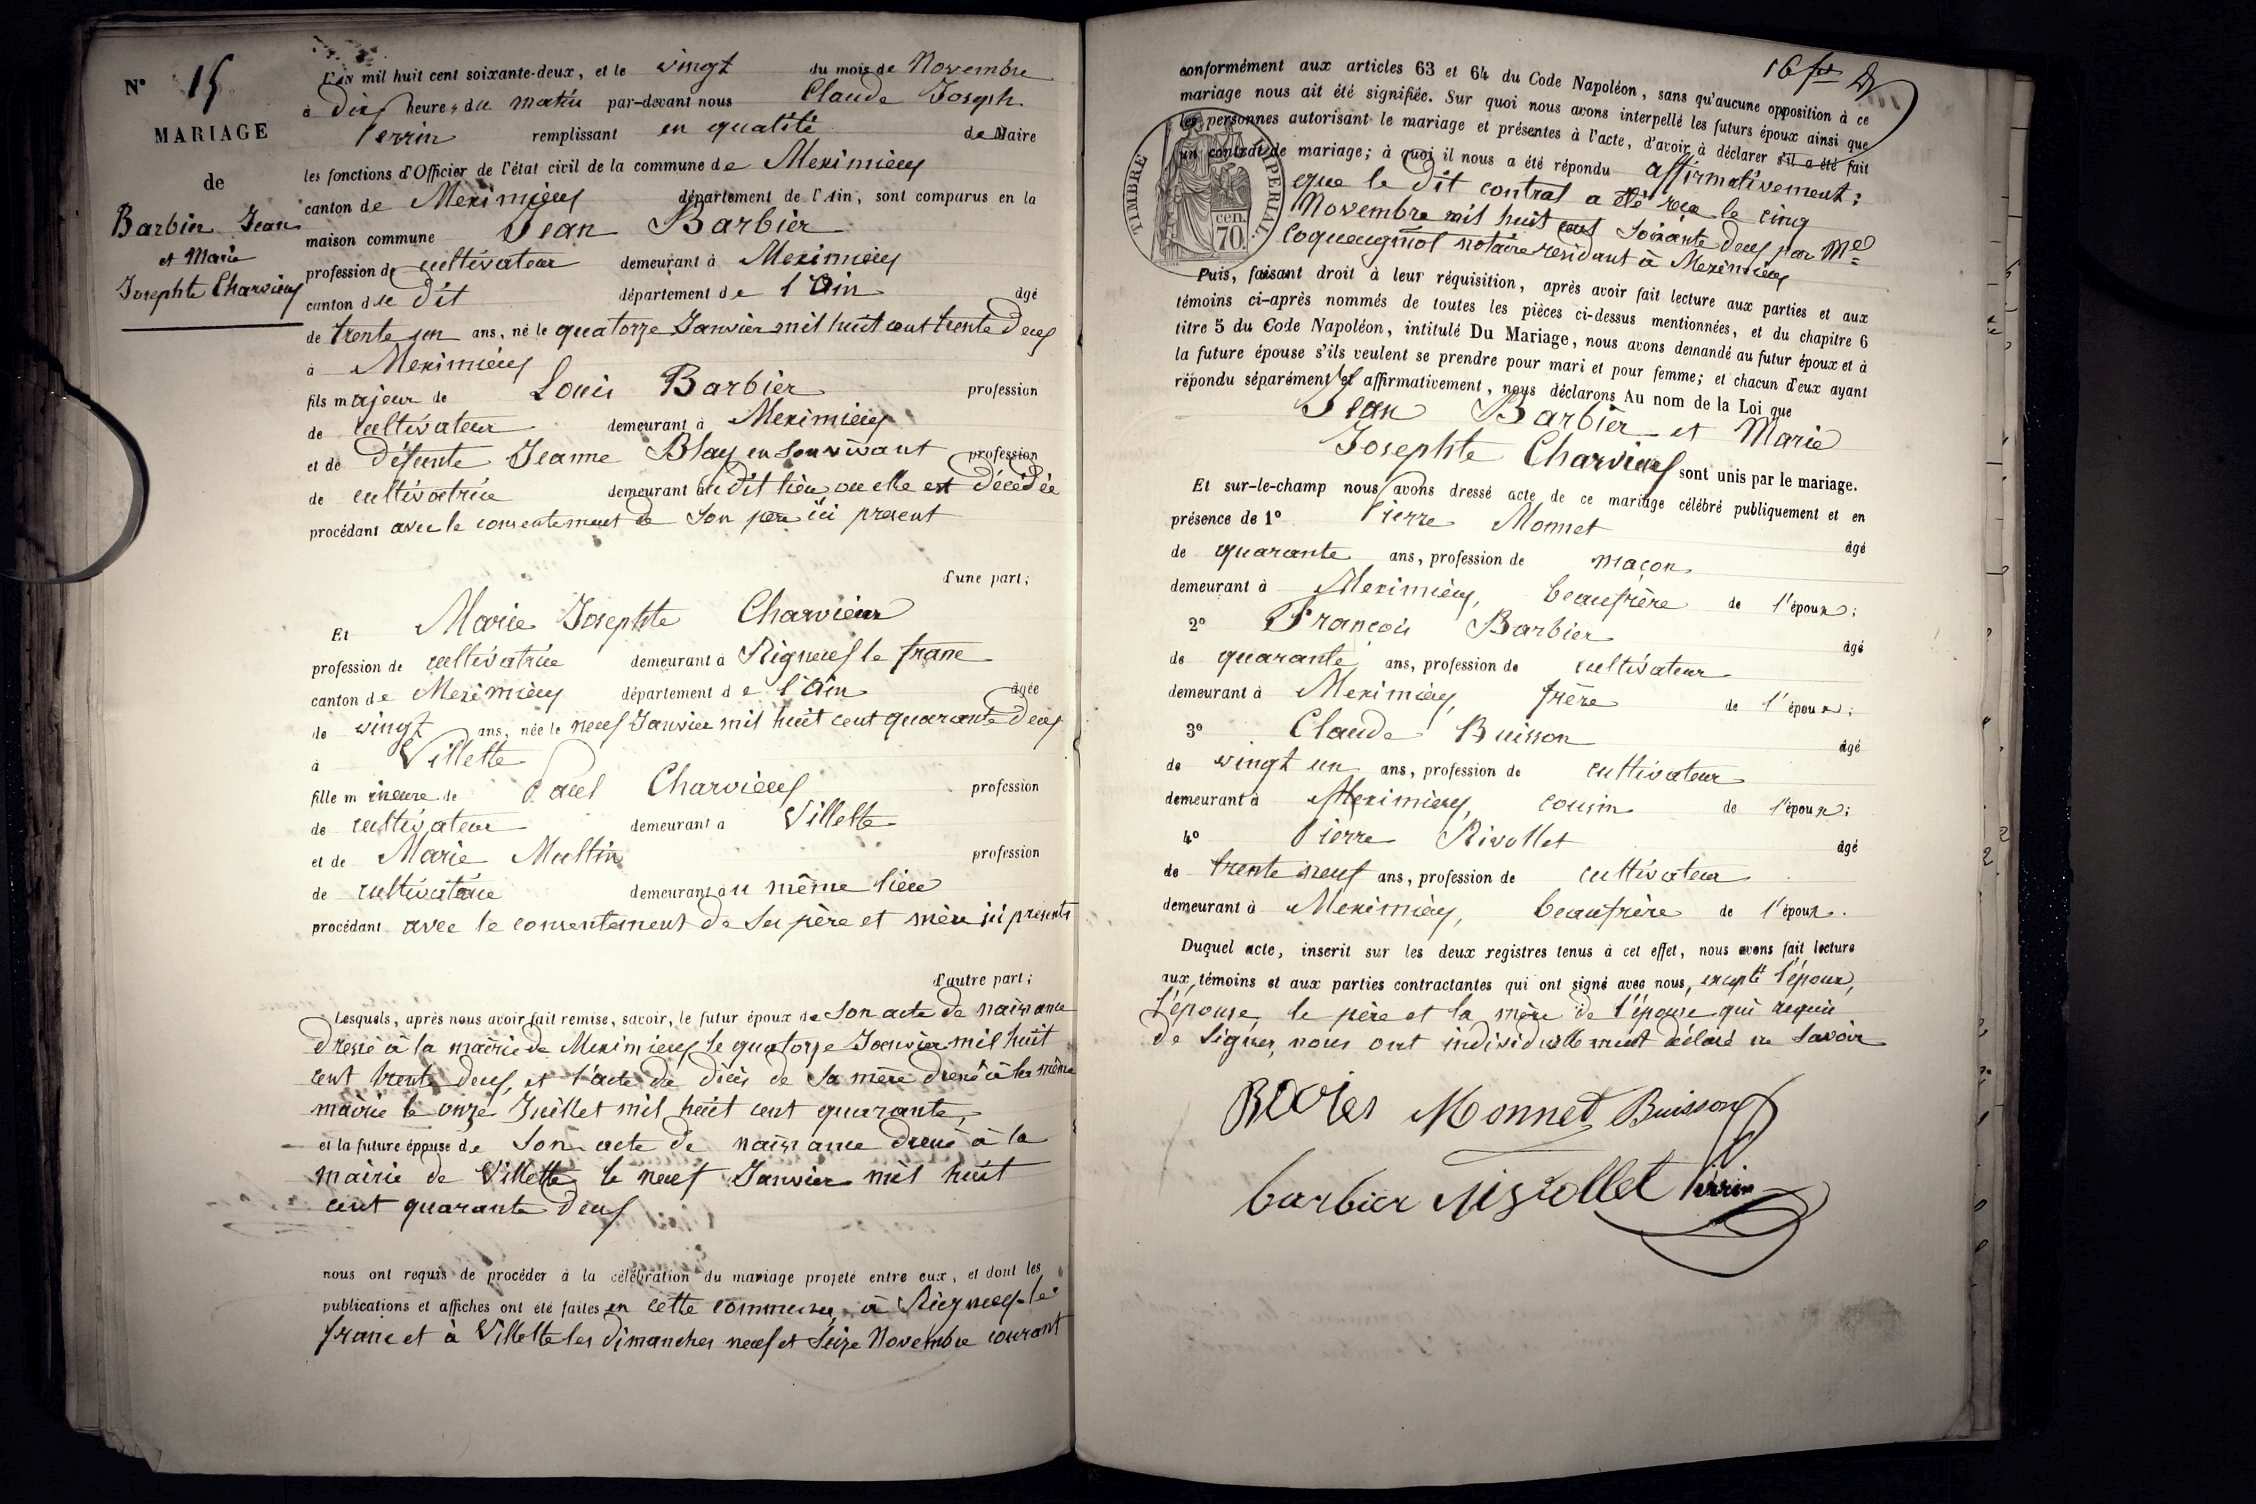 N° 15
MARIAGE
de
Barbier Jean
et Marie
Josephte Charvieux
L'an mil huit cent soixante-deux, et le vingt du mois de Novembre
à Dix heures du matin par-devant nous Claude Joseph
Perrin remplissant en qualité de Maire
les fonctions d'Officier de l'état civil de la commune de Meximieux
canton de Meximieux département de l'Ain, sont comparus en la
maison commune Jean Barbier
profession de cultivateur demeurant à Meximieux
canton du dit département de l'Ain âgé
de trente un ans, né le quatorze Janvier mil huit cent trente Deux
à Meximieux
fils majeur de Louis Barbier profession
de cultivateur demeurant à Meximieux
et de défunte Jeanne Blay en son vivant profession
de cultivatrice demeurant au dit lieu ou elle est Décédée
procédant avec le consentement de Son père ici present
d'une part;
Et Marie Josephte Charvieux
profession de cultivatrice demeurant à Rigneux le franc
canton de Meximieux département de l'Ain âgée
de vingt ans, née le neuf Janvier mil huit cent quarante Deux
à Villette
fille mineure de Paul Charvieux profession
de cultivateur demeurant à Villette
et de Marie Multin profession
de cultivatrice demeurant au même lieu
procédant avec le consentement de Ses père et mère ici présents
d'autre part;
Lesquels, après nous avoir fait remise, savoir, le futur époux de Son acte de naissance
Dressé à la mairie de Meximieux le quatorze Janvier mil huit
cent trente deux, et l'acte de décès de Sa mère dressé à la même
mairie le onze Juillet mil huit cent quarante,
et la future épouse de Son acte de naissance dressé à la
mairie de Villette le neuf Janvier mil huit
cent quarante deux
nous ont requis de procéder à la célébration du mariage projeté entre eux, et dont les
publications et affiches ont été faites en cette commune, à Rigneux-le
franc et à Villette les Dimanches neuf et Seize Novembre courant
16
conformément aux articles 63 et 64 du Code Napoléon, sans qu'aucune opposition à ce
mariage nous ait été signifiée. Sur quoi nous avons interpellé les futurs époux ainsi que
les personnes autorisant le mariage et présentes à l'acte, d'avoir à déclarer s'il a été fait
un contrat de mariage; à quoi il nous a été répondu affirmativement:
que le Dit contrat a été reçu le cinq
Novembre mil huit cent Soixante Deux par Me
notaire résidant à Meximieux
TIMBRE IMPÉRIAL
70 cen.
Puis, faisant droit à leur réquisition, après avoir fait lecture aux parties et aux
témoins ci-après nommés de toutes les pièces ci-dessus mentionnées, et du chapitre 6
titre 5 du Code Napoléon, intitulé Du Mariage, nous avons demandé au futur époux et à
la future épouse s'ils veulent se prendre pour mari et pour femme; et chacun d'eux ayant
répondu séparément et affirmativement, nous déclarons Au nom de la Loi que
Jean Barbier et Marie
Josephte Charvieux sont unis par le mariage.
Et sur-le-champ nous avons dressé acte de ce mariage célébré publiquement et en
présence de 1° Pierre Monnet âgé
de quarante ans, profession de maçon
demeurant à Meximieux, beaufrère de l'époux;
2° François Barbier âgé
de quarante ans, profession de cultivateur
demeurant à Meximieux, frère de l'époux;
3° Claude Buisson âgé
de vingt un ans, profession de cultivateur
demeurant à Meximieux, cousin de l'époux;
4° Pierre Rivollet âgé
de trente neuf ans, profession de cultivateur
demeurant à Meximieux, beaufrère de l'époux.
Duquel acte, inscrit sur les deux registres tenus à cet effet, nous avons fait lecture
aux témoins et aux parties contractantes qui ont signé avec nous, excepté l'époux,
l'épouse, le père et la mère de l'épouse qui requis
de Signer, nous ont individuellement déclaré ne Savoir
Monnet Buisson
barbier Rivollet Perrin